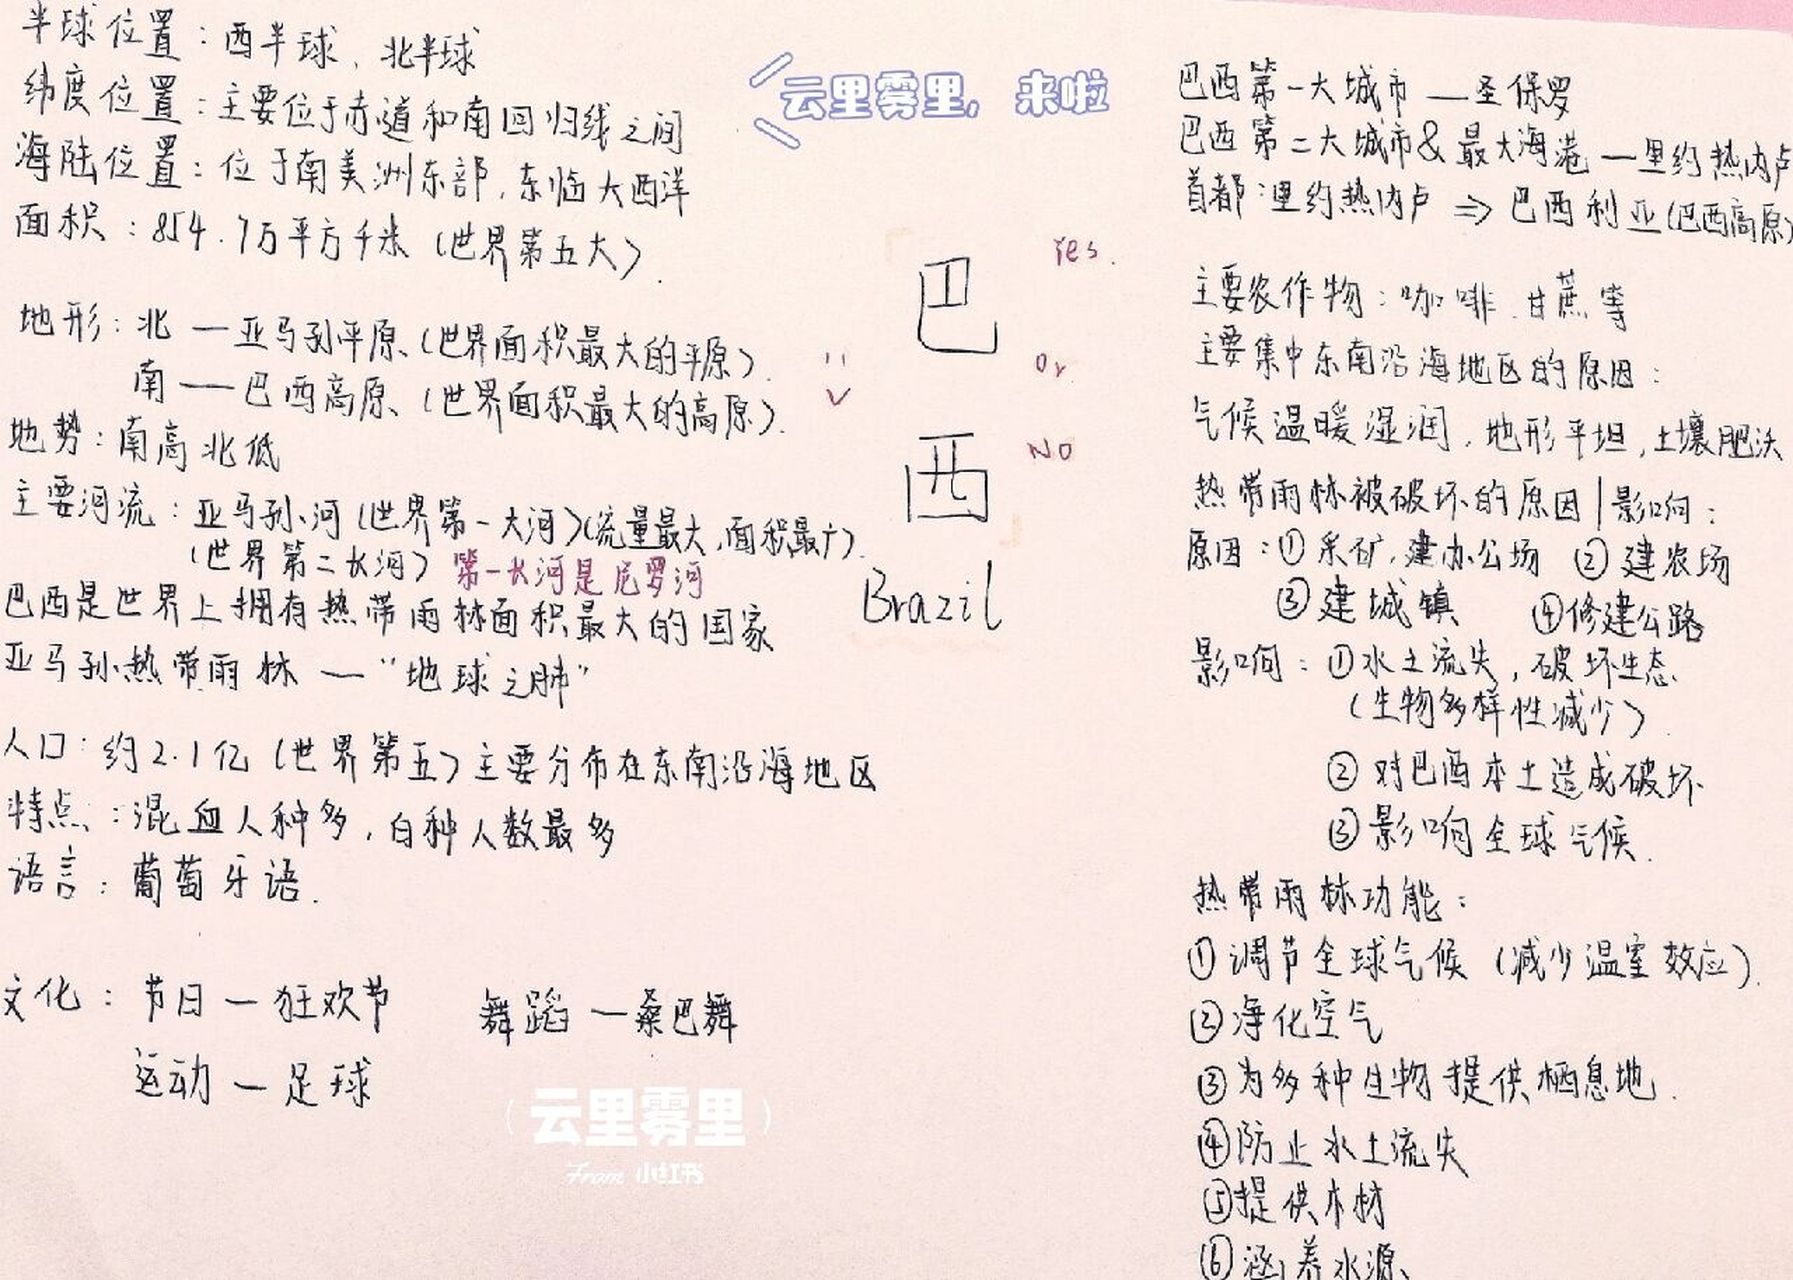 半球位置：西半球、北半球
纬度位置：主要位于赤道和南回归线之间
海陆位置：位于南美洲东部，东临大西洋
面积：854.7万平方千米（世界第五大）.
地形：北—亚马孙平原、（世界面积最大的平原）.
南—巴西高原、（世界面积最大的高原）.
地势：南高北低
主要河流：亚马孙河（世界第一大河）（流量最大，面积最广）.
（世界第二长河） 第一长河是尼罗河
巴西是世界上拥有热带雨林面积最大的国家
亚马孙热带雨林—“地球之肺”
人口：约2.1亿（世界第五）主要分布在东南沿海地区
特点：混血人种多，白种人数最多
语言：葡萄牙语.
文化：节日—狂欢节 舞蹈—桑巴舞
运动—足球
云里雾里，来啦
巴
西
Brazil
Yes.
Or
No
（云里雾里）
From 小红书
巴西第一大城市—圣保罗
巴西第二大城市&最大海港—里约热内卢
首都：里约热内卢⇒巴西利亚（巴西高原）
主要农作物：咖啡、甘蔗等
主要集中东南沿海地区的原因：
气候温暖湿润，地形平坦，土壤肥沃
热带雨林被破坏的原因|影响：
原因：①采矿，建办公场 ②建农场
③建城镇 ④修建公路
影响：①水土流失，破坏生态
（生物多样性减少）.
②对巴西本土造成破坏
③影响全球气候.
热带雨林功能：
①调节全球气候（减少温室效应）.
②净化空气
③为多种生物提供栖息地.
④防止水土流失
⑤提供木材
⑥涵养水源、